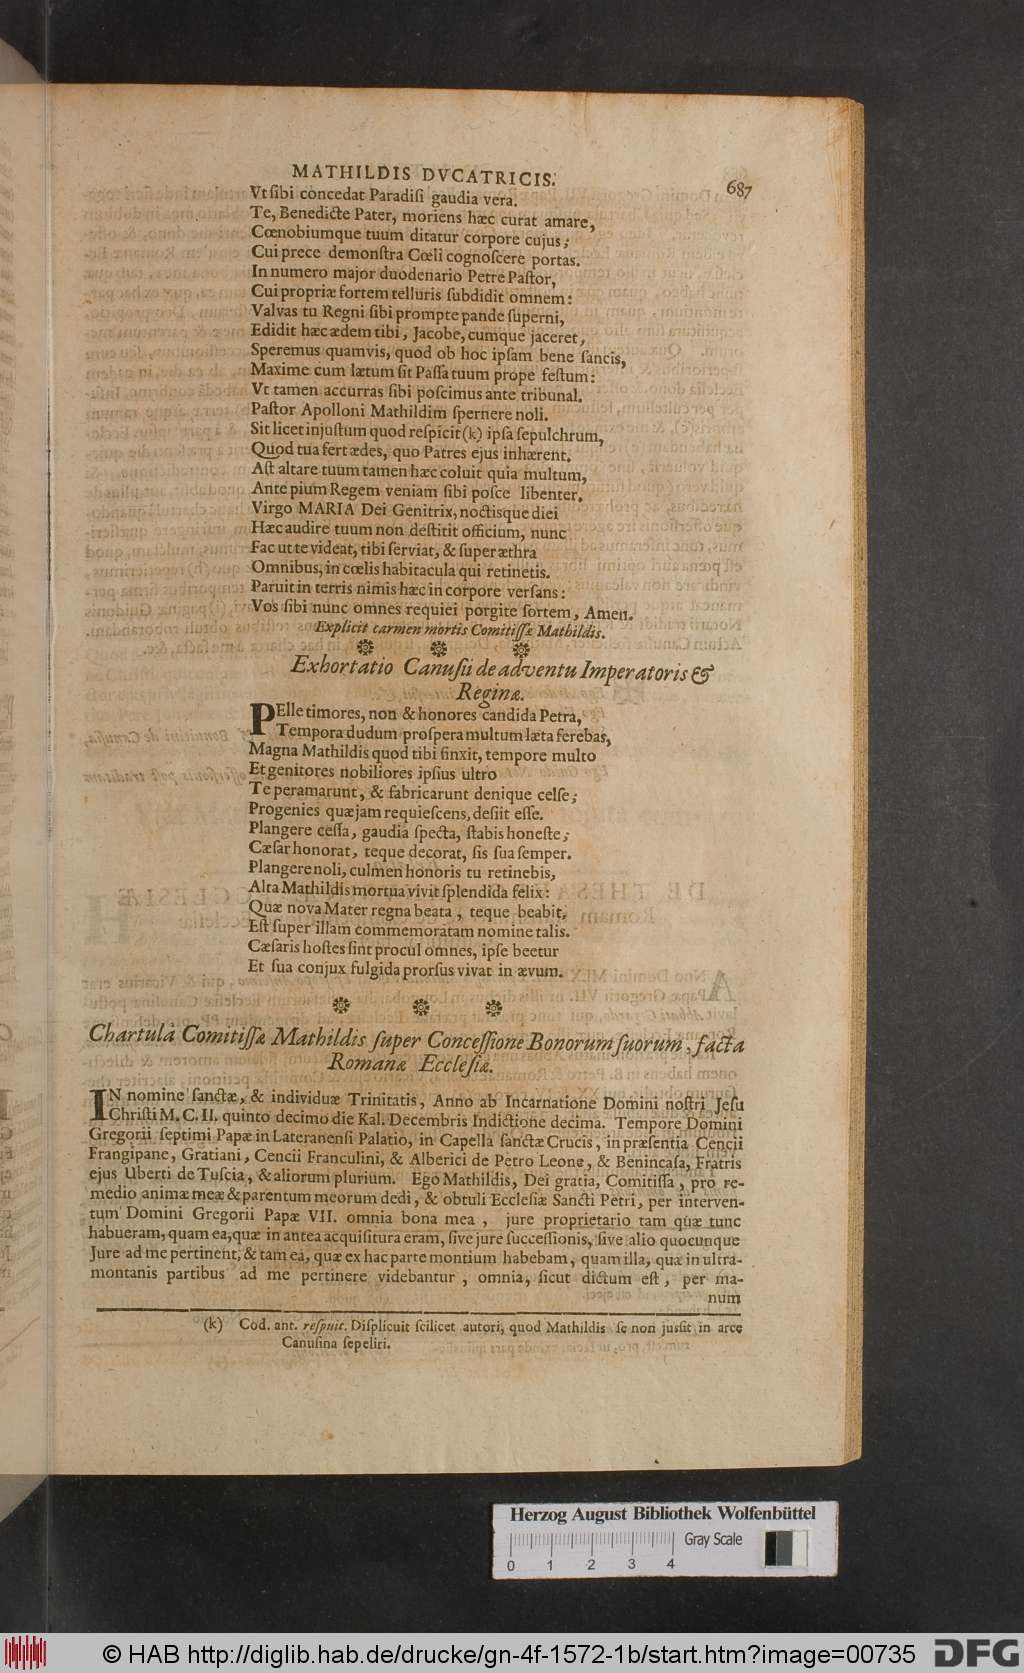 MATHILDIS DVCATRICIS.
687
Vt ſibi concedat Paradiſi gaudia vera.
Te, Benedicte Pater, moriens hæc curat amare,
Cœnobiumque tuum ditatur corpore cujus;
Cui prece demonſtra Cœli cognoſcere portas.
In numero major duodenario Petre Paſtor,
Cui propriæ fortem telluris ſubdidit omnem:
Valvas tu Regni ſibi prompte pande ſuperni,
Edidit hæc ædem tibi, Jacobe, cumque jaceret,
Speremus quamvis, quod ob hoc ipſam bene ſancis,
Maxime cum lætum ſit Paſſa tuum prope feſtum:
Vt tamen accurras ſibi poſcimus ante tribunal.
Paſtor Apolloni Mathildim ſpernere noli.
Sit licet injuſtum quod reſpicit (k) ipſa ſepulchrum,
Quod tua fert ædes, quo Patres ejus inhærent.
Aſt altare tuum tamen hæc coluit quia multum,
Ante pium Regem veniam ſibi poſce libenter.
Virgo MARIA Dei Genitrix, noctisque diei
Hæc audire tuum non deſtitit officium, nunc
Fac ut te videat, tibi ſerviat, & ſuper æthra
Omnibus, in cœlis habitacula qui retinetis.
Paruit in terris nimis hæc in corpore verſans:
Vos ſibi nunc omnes requiei porgite ſortem, Amen.
Explicit carmen mortis Comitiſſæ Mathildis.
Exhortatio Canuſii de adventu Imperatoris &
Reginæ.
PElle timores, non & honores candida Petra,
Tempora dudum proſpera multum læta ferebas,
Magna Mathildis quod tibi finxit, tempore multo
Et genitores nobiliores ipſius ultro
Te peramarunt, & fabricarunt denique celſe;
Progenies quæ jam requieſcens, deſiit eſſe.
Plangere ceſſa, gaudia ſpecta, ſtabis honeſte;
Cæſar honorat, teque decorat, ſis ſua ſemper.
Plangere noli, culmen honoris tu retinebis,
Alta Mathildis mortua vivit ſplendida felix:
Quæ nova Mater regna beata, teque beabit,
Eſt ſuper illam commemoratam nomine talis.
Cæſaris hoſtes ſint procul omnes, ipſe beetur
Et ſua conjux fulgida prorſus vivat in ævum.
Chartula Comitiſſæ Mathildis ſuper Conceſſione Bonorum ſuorum, facta
Romanæ Eccleſiæ.
IN nomine ſanctæ, & individuæ Trinitatis, Anno ab Incarnatione Domini noſtri Jeſu
Chriſti M. C. II. quinto decimo die Kal. Decembris Indictione decima. Tempore Domini
Gregorii ſeptimi Papæ in Lateranenſi Palatio, in Capella ſanctæ Crucis, in præſentia Cencii
Frangipane, Gratiani, Cencii Franculini, & Alberici de Petro Leone, & Benincaſa, Fratris
ejus Uberti de Tuſcia, & aliorum plurium. Ego Mathildis, Dei gratia, Comitiſſa, pro re-
medio animæ meæ & parentum meorum dedi, & obtuli Eccleſiæ Sancti Petri, per interven-
tum Domini Gregorii Papæ VII. omnia bona mea, jure proprietario tam quæ tunc
habueram, quam ea, quæ in antea acquiſitura eram, ſive jure ſucceſſionis, ſive alio quocunque
Jure ad me pertinent, & tam ea, quæ ex hac parte montium habebam, quam illa, quæ in ultra-
montanis partibus ad me pertinere videbantur, omnia, ſicut dictum eſt, per ma-
num
(k) Cod. ant. reſpuit. Diſplicuit ſcilicet autori, quod Mathildis ſe non juſſit in arce
Canuſina ſepeliri.
Herzog August Bibliothek Wolfenbüttel
Gray Scale
0 1 2 3 4
© HAB http://diglib.hab.de/drucke/gn-4f-1572-1b/start.htm?image=00735
DFG